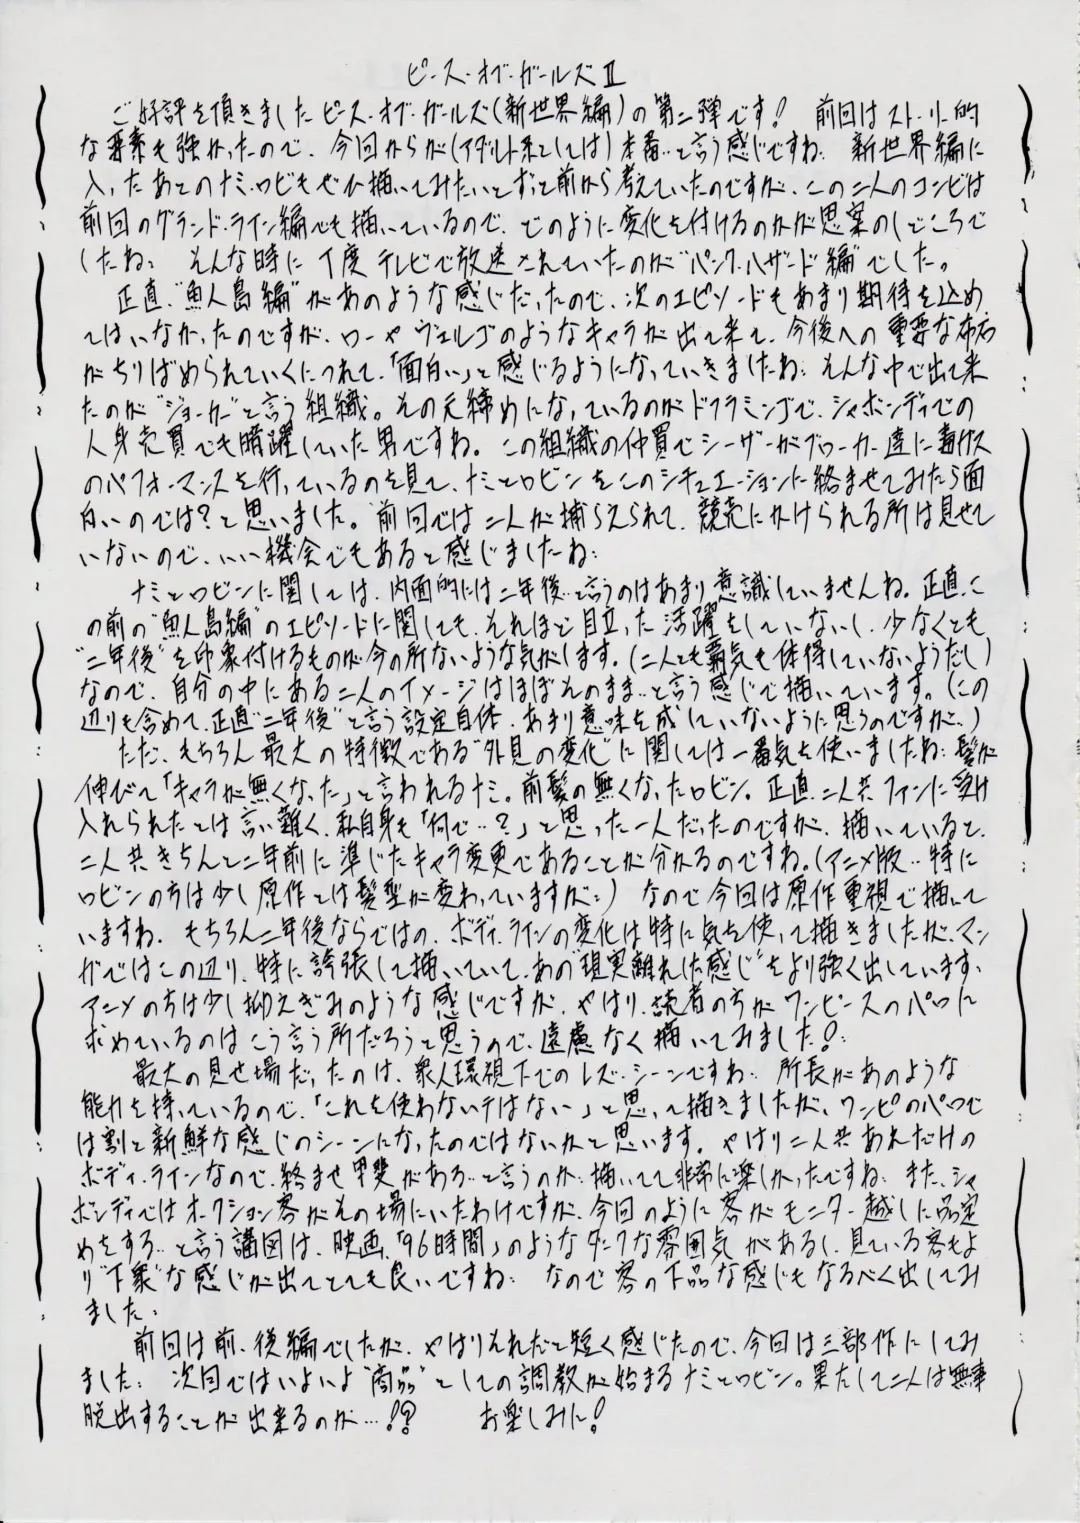 ピース・オブ・ガールズⅡ
ご好評を頂きましたピース・オブ・ガールズ(新世界編)の第二弾です! 前回はストーリー的
な要素も強かったので、今回からが(アダルト系としては)本番…と言う感じですね… 新世界編に
入ったあとのナミ・ロビもぜひ描いてみたいとずっと前から考えていたのですが、この二人のコンビは
前回のグランド・ライン編でも描いているので、どのように変化を付けるのかが思案のしどころで
したね… そんな時に丁度テレビで放送されていたのが“パンク・ハザード編”でした。
正直、“魚人島編”があのような感じだったので、次のエピソードもあまり期待を込め
てはいなかったのですが、ローやヴェルゴのようなキャラが出て来て、今後への重要な布石
がちりばめられていくにつれて、「面白い」と感じるようになっていきましたね… そんな中で出て来
たのが“ジョーカー”と言う組織。その元締めになっているのがドフラミンゴで、シャボンディでの
人身売買でも暗躍していた男ですね。この組織の仲買でシーザーがブローカー達に毒ガス
のパフォーマンスを行っているのを見て、ナミとロビンをこのシチュエーションに絡ませてみたら面
白いのでは?と思いました。前回では二人が捕らえられて、競売にかけられる所は見せて
いないので、いい機会でもあると感じましたね…
ナミとロビンに関しては、内面的には二年後…と言うのはあまり意識していませんね。正直、こ
の前の“魚人島編”のエピソードに関しても、それほど目立った活躍をしていないし、少なくとも
“二年後”を印象付けるものが今の所ないような気がします。(二人とも覇気も体得していないようだし)
なので、自分の中にある二人のイメージはほぼそのまま…と言う感じで描いています。(この
辺りも含めて、正直“二年後”と言う設定自体、あまり意味を成していないように思うのですが…)
ただ、もちろん最大の特徴である“外見の変化”に関しては一番気を使いましたね… 髪が
伸びて「キャラが無くなった」と言われるナミ。前髪の無くなったロビン。正直、二人共ファンに受け
入れられたとは言い難く、私自身も「何で…?」と思った一人だったのですが、描いていると、
二人共きちんと二年前に準じたキャラ変更であることが分かるのですね。(アニメ版…特に
ロビンの方は少し原作とは髪型が変わっていますが…) なので今回は原作重視で描いて
いますね。もちろん二年後ならではの、ボディ・ラインの変化は特に気を使って描きましたが、マン
ガではこの辺り、特に誇張して描いていて、あの“現実離れした感じ”をより強く出しています、
アニメの方は少し抑えぎみのような感じですが、やはり、読者の方がワンピースのパロに
求めているのはこう言う所だろうと思うので、遠慮なく描いてみました!…
最大の見せ場だったのは、衆人環視下でのレズ・シーンですね… 所長があのような
能力を持っているので、「これを使わないテはない」と思って描きましたが、ワンピのパロで
は割と新鮮な感じのシーンになったのではないかと思います。やはり二人共あれだけの
ボディ・ラインなので、絡ませ甲斐がある…と言うのか…描いてて非常に楽しかったですね… また、シャ
ボンディではオークション客がその場にいたわけですが、今回のように客がモニター越しに品定
めをする…と言う構図は、映画、「96時間」のようなダークな雰囲気があるし、見ている客もよ
り“下衆”な感じが出てとても良いですね… なので客の下品な感じもなるべく出してみ
ました…
前回は前、後編でしたが、やはりそれだと短く感じたので、今回は三部作にしてみ
ました… 次回ではいよいよ“商品”としての調教が始まるナミとロビン。果たして二人は無事
脱出することが出来るのか…!? お楽しみに!